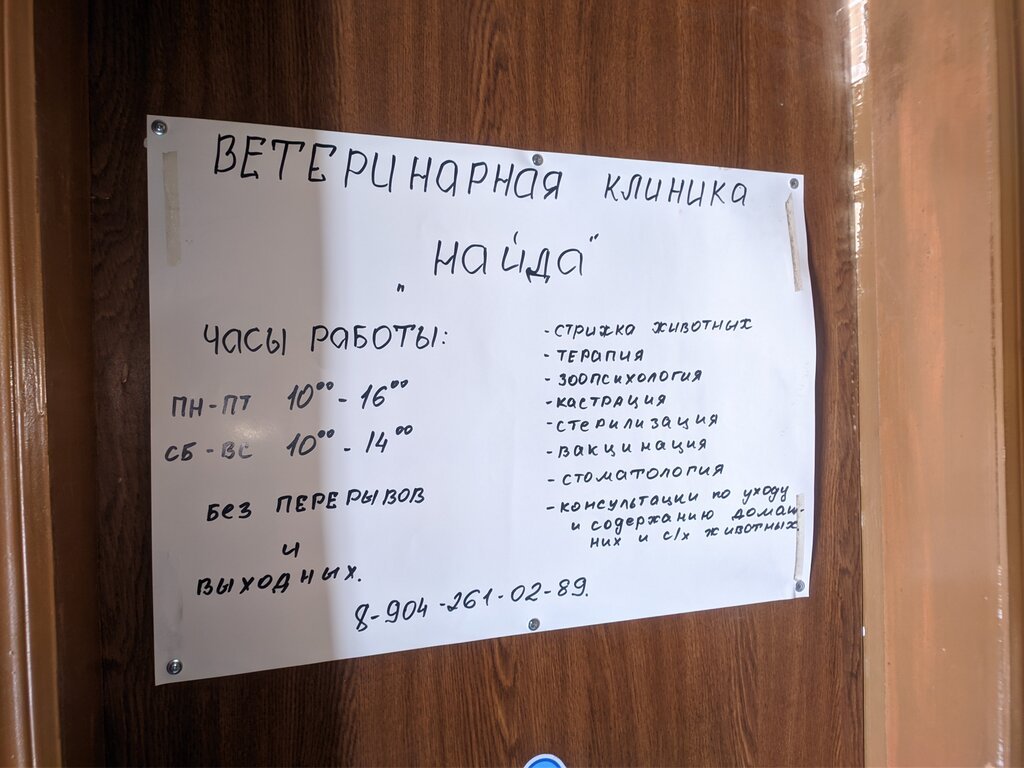 ВЕТЕРИНАРНАЯ КЛИНИКА
„НАЙДА"
ЧАСЫ РАБОТЫ:
ПН-ПТ 10⁰⁰ - 16⁰⁰
СБ-ВС 10⁰⁰ - 14⁰⁰
БЕЗ ПЕРЕРЫВОВ
И
ВЫХОДНЫХ.
- СТРИЖКА ЖИВОТНЫХ
- ТЕРАПИЯ
- ЗООПСИХОЛОГИЯ
- КАСТРАЦИЯ
- СТЕРИЛИЗАЦИЯ
- ВАКЦИНАЦИЯ
- СТОМАТОЛОГИЯ
- КОНСУЛЬТАЦИИ ПО УХОДУ
И СОДЕРЖАНИЮ ДОМАШ-
НИХ И С/Х ЖИВОТНЫХ
8-904-261-02-89.